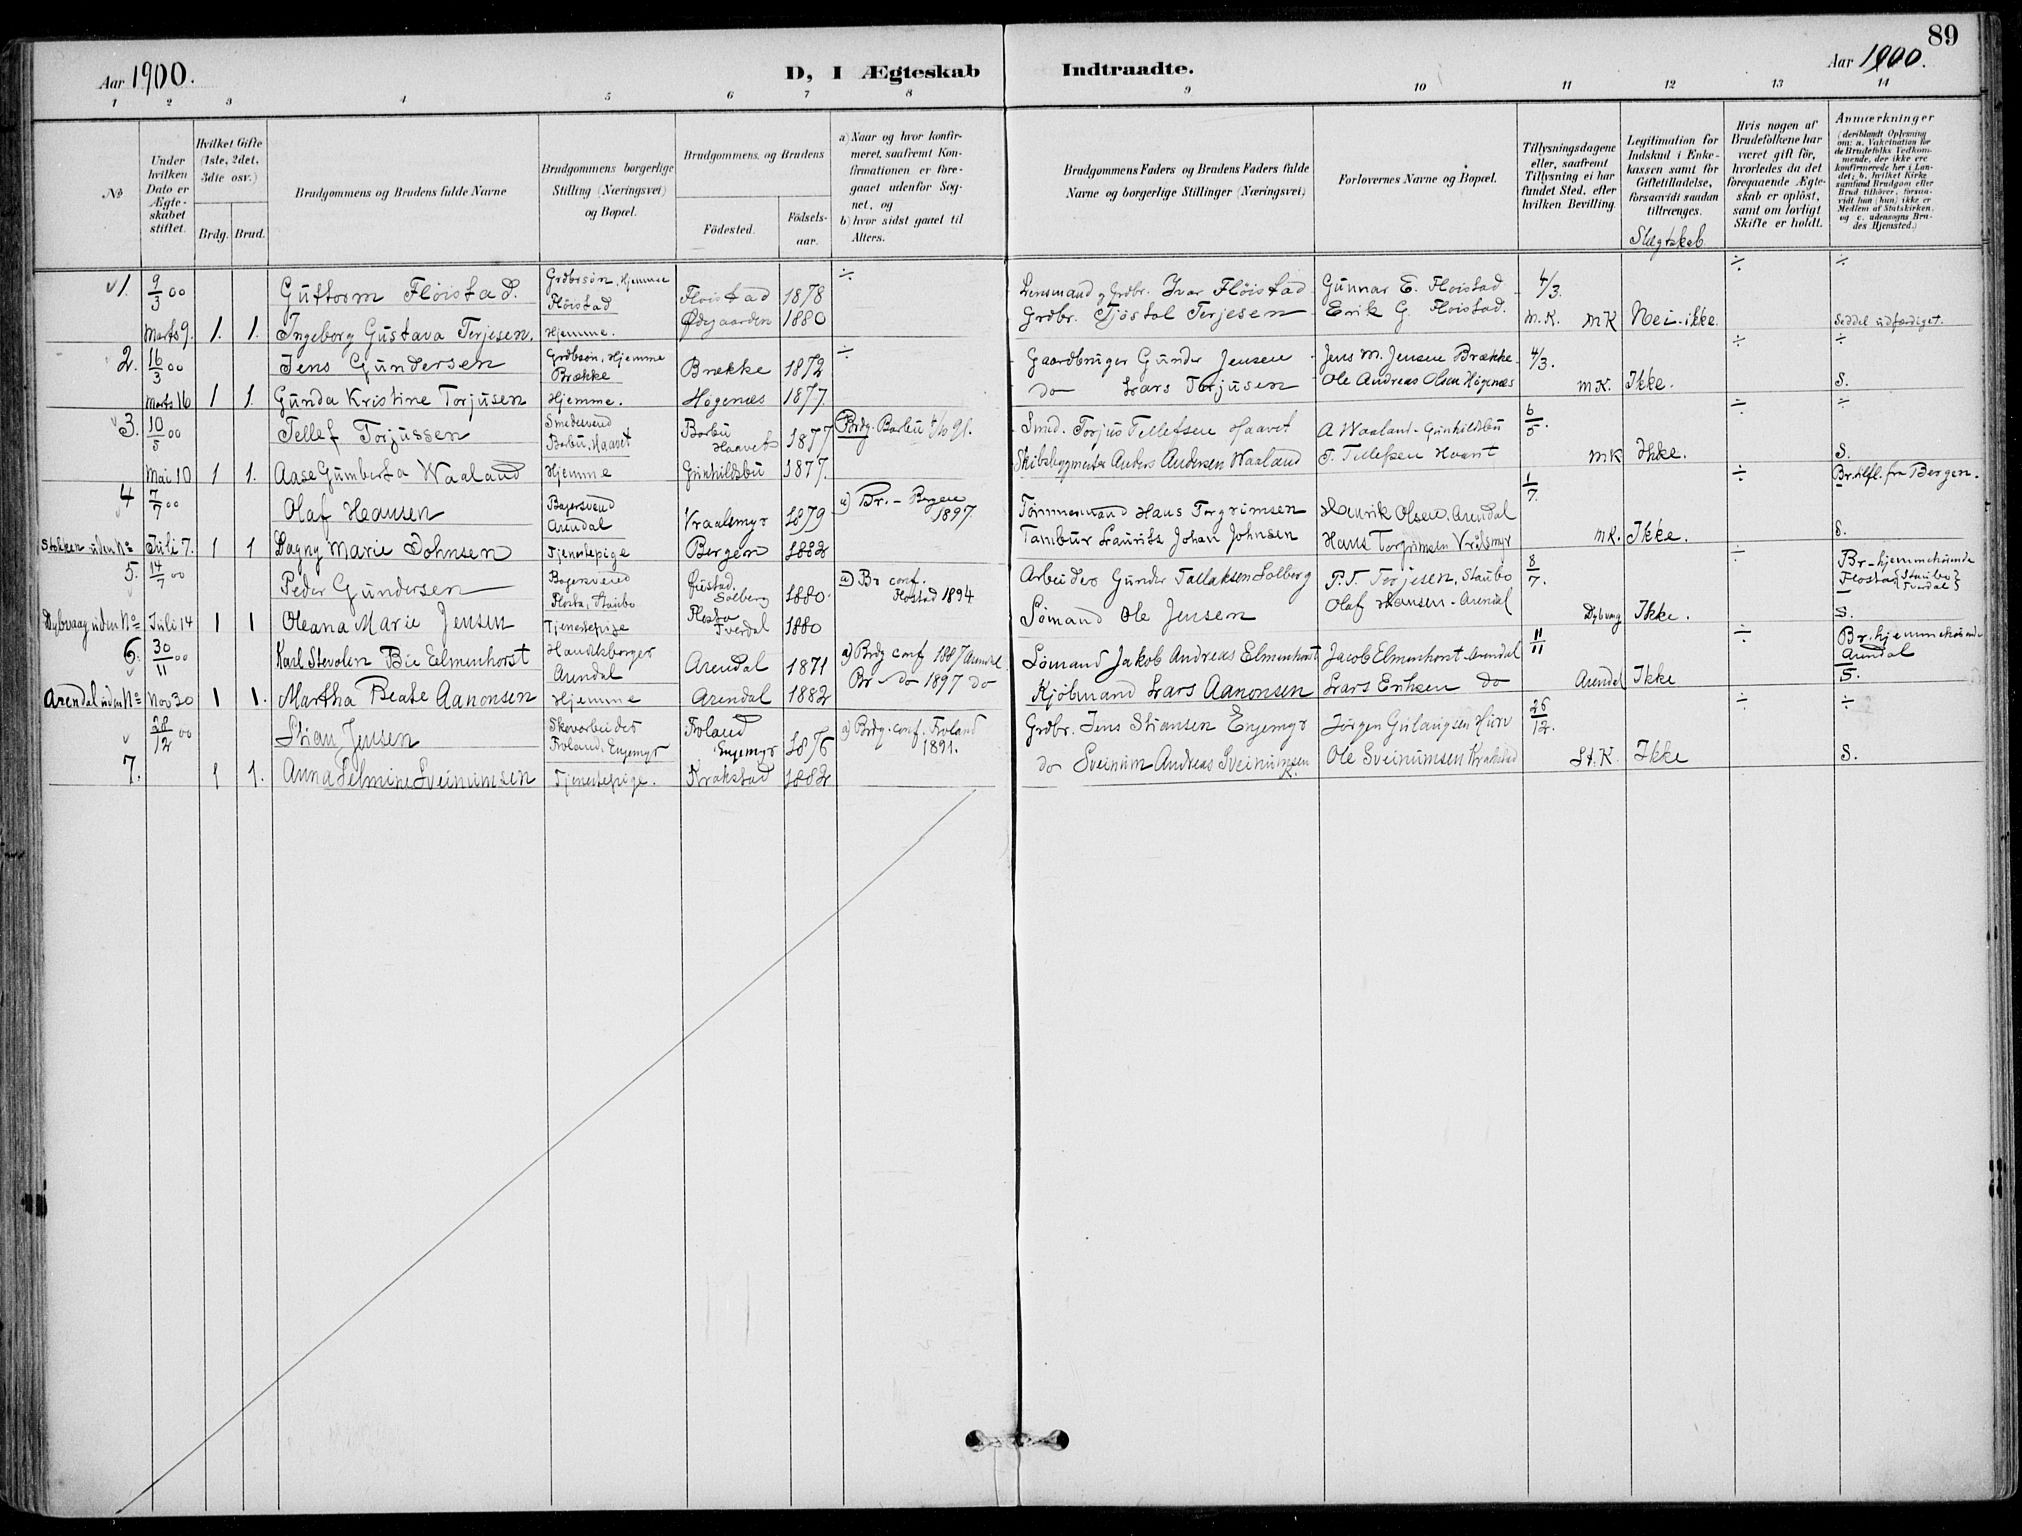 89
Aar 1900.
D, I Ægteskab Indtraadte.
Aar 1900.
1 2 3 4 5 6 7 8 9 10 11 12 13 14
No
Under hvilken Dato er Ægteskabet stiftet.
Hvilket Gifte (1ste, 2det, 3die osv.)
Brdg. Brud.
Brudgommens og Brudens fulde Navne
Brudgommens borgerlige Stilling (Næringsvei) og Bopæl.
Brudgommens og Brudens
Födested.
Födselsaar.
a) Naar og hvor konfirmeret, saafremt Konfirmationen er foregaaet udenfor Sognet, og
b) hvor sidst gaaet til Alters.
Brudgommens Faders og Brudens Faders fulde Navne og borgerlige Stillinger (Næringsvei)
Forlovernes Navne og Bopæl.
Tillysningsdagene eller, saafremt Tillysning ei har fundet Sted, efter hvilken Bevilling.
Legitimation for Indskud i Enkekassen samt for Giftetilladelse, forsaavidt saadan tiltrænges.
Slægtskab
Hvis nogen af Brudefolkene har været gift för, hvorledes da det foregaaende Ægteskab er oplöst, samt om lovligt Skifte er holdt.
Anmærkninger
(deriblandt Oplysning om: a. Vakcination for de Brudefolks Vedkommende, der ikke ere konfirmerede her i Landet; b. hvilket Kirkesamfund Brudgom eller Brud tilhörer, forsaavidt han (hun) ikke er Medlem af Statskirken, og c. udensogns Brudes Hjemsted.)
1. 9/3 00 Guttorm Fløistad. Grdbrsøn, Hjemme Fløistad Fløistad 1878 ÷ Lensmand og Grdbr. Ivar Fløistad Gunnar E. Fløistad 4/3. ÷ ÷
Marts 9. 1. 1. Ingeborg Gustava Terjesen. Hjemme. Ødegaarden 1880 Grdbr. Tjøstol Terjesen Erik G. Fløistad. M.K. MK Nei-ikke. Seddel udfærdiget.
2. 16/3 00 Jens Gundersen Grdbsøn, Hjemme Brække Brække 1872 ÷ Gaardbruger Gunder Jensen Jens M. Jensen Brække 4/3. ÷ ÷
Marts 16 1 1. Gunda Kristine Torjusen Hjemme. Høgenæs 1877 do Lars Torjusen Ole Andreas Olsen Høgenæs MK. Ikke. S.
3. 10/5 00 Tellef Torjussen Smedesvend Barbu, Haavet Barbu Haavet 1877 Brdg. Barbu 4/10 91. Smed. Torjus Tellefsen Haavet A Waaland-Gunhildsbu 6/5. ÷ ÷
Mai 10 1 1. Aase Gumberta Waaland Hjemme Gunhildsbu 1877. Skibsbygmester Anders Andersen Waaland T. Tellefsen MK Ikke. S.
4 7/7 00 Olaf Hansen Bagersvend Arendal Vraalsmyr 1879 a) Br. - Bergen 1897. Tømmermand Hans Torgrimsen Henrik Olsen, Arendal 1/7. ÷ Br. tilfl. fra Bergen.
Stokken uden No Juli 7. 1 1 Dagny Marie Johnsen Tjenestepige Bergen 1882 Tambur Laurits Johan Johnsen Hans Torgrimsen Vrålsmyr MK. Ikke. S.
5. 14/7 00 Peder Gundersen Bagersvend Flosta, Staubo Solberg 1880. a) Br conf. Flostad 1894 Arbeider Gunder Tallaksen Solberg P. T. Terjesen, Staubo 8/7. ÷ Br-hjemmehørende Flosta {Staubo Tverdal}
Dybvaag uden No Juli 14 1 1 Oleana Marie Jensen Tjenestepige Flosta Tverdal 1880 Sømand Ole Jensen Olaf Hansen-Arendal Dybvaag Ikke. S.
6. 30/11 00 Karl Stevolen Bie Elmenhorst Arendal Arendal 1871 a) Brdg conf 1887 Arendal Sømand Jakob Andreas Elmenhorst Jacob Elmenhorst Arendal 11/11 ÷ Br. hjemmehørende Arendal
Arendal uden No Nov 30 1 1. Martha Beate Aanonsen Hjemme Arendal 1882 Br - do 1897 do Kjøbmand Lars Aanonsen Lars Eriksen do Arendal Ikke S.
28/12 00 Stian Jensen Skovarbeider Froland, Engemyr Froland Engemyr 1876 a) Brdg. conf. Froland 1891. Grdbr. Jens Stiansen Engemyr Jørgen 26/12. ÷ ÷
7. 1 1. Anna Selmine Sveinumsen Tjenestepige. Krakstad 1882 do Sveinum Andreas Sveinumsen K. Ole Sveinumsen Krakstad St.K. Ikke S.